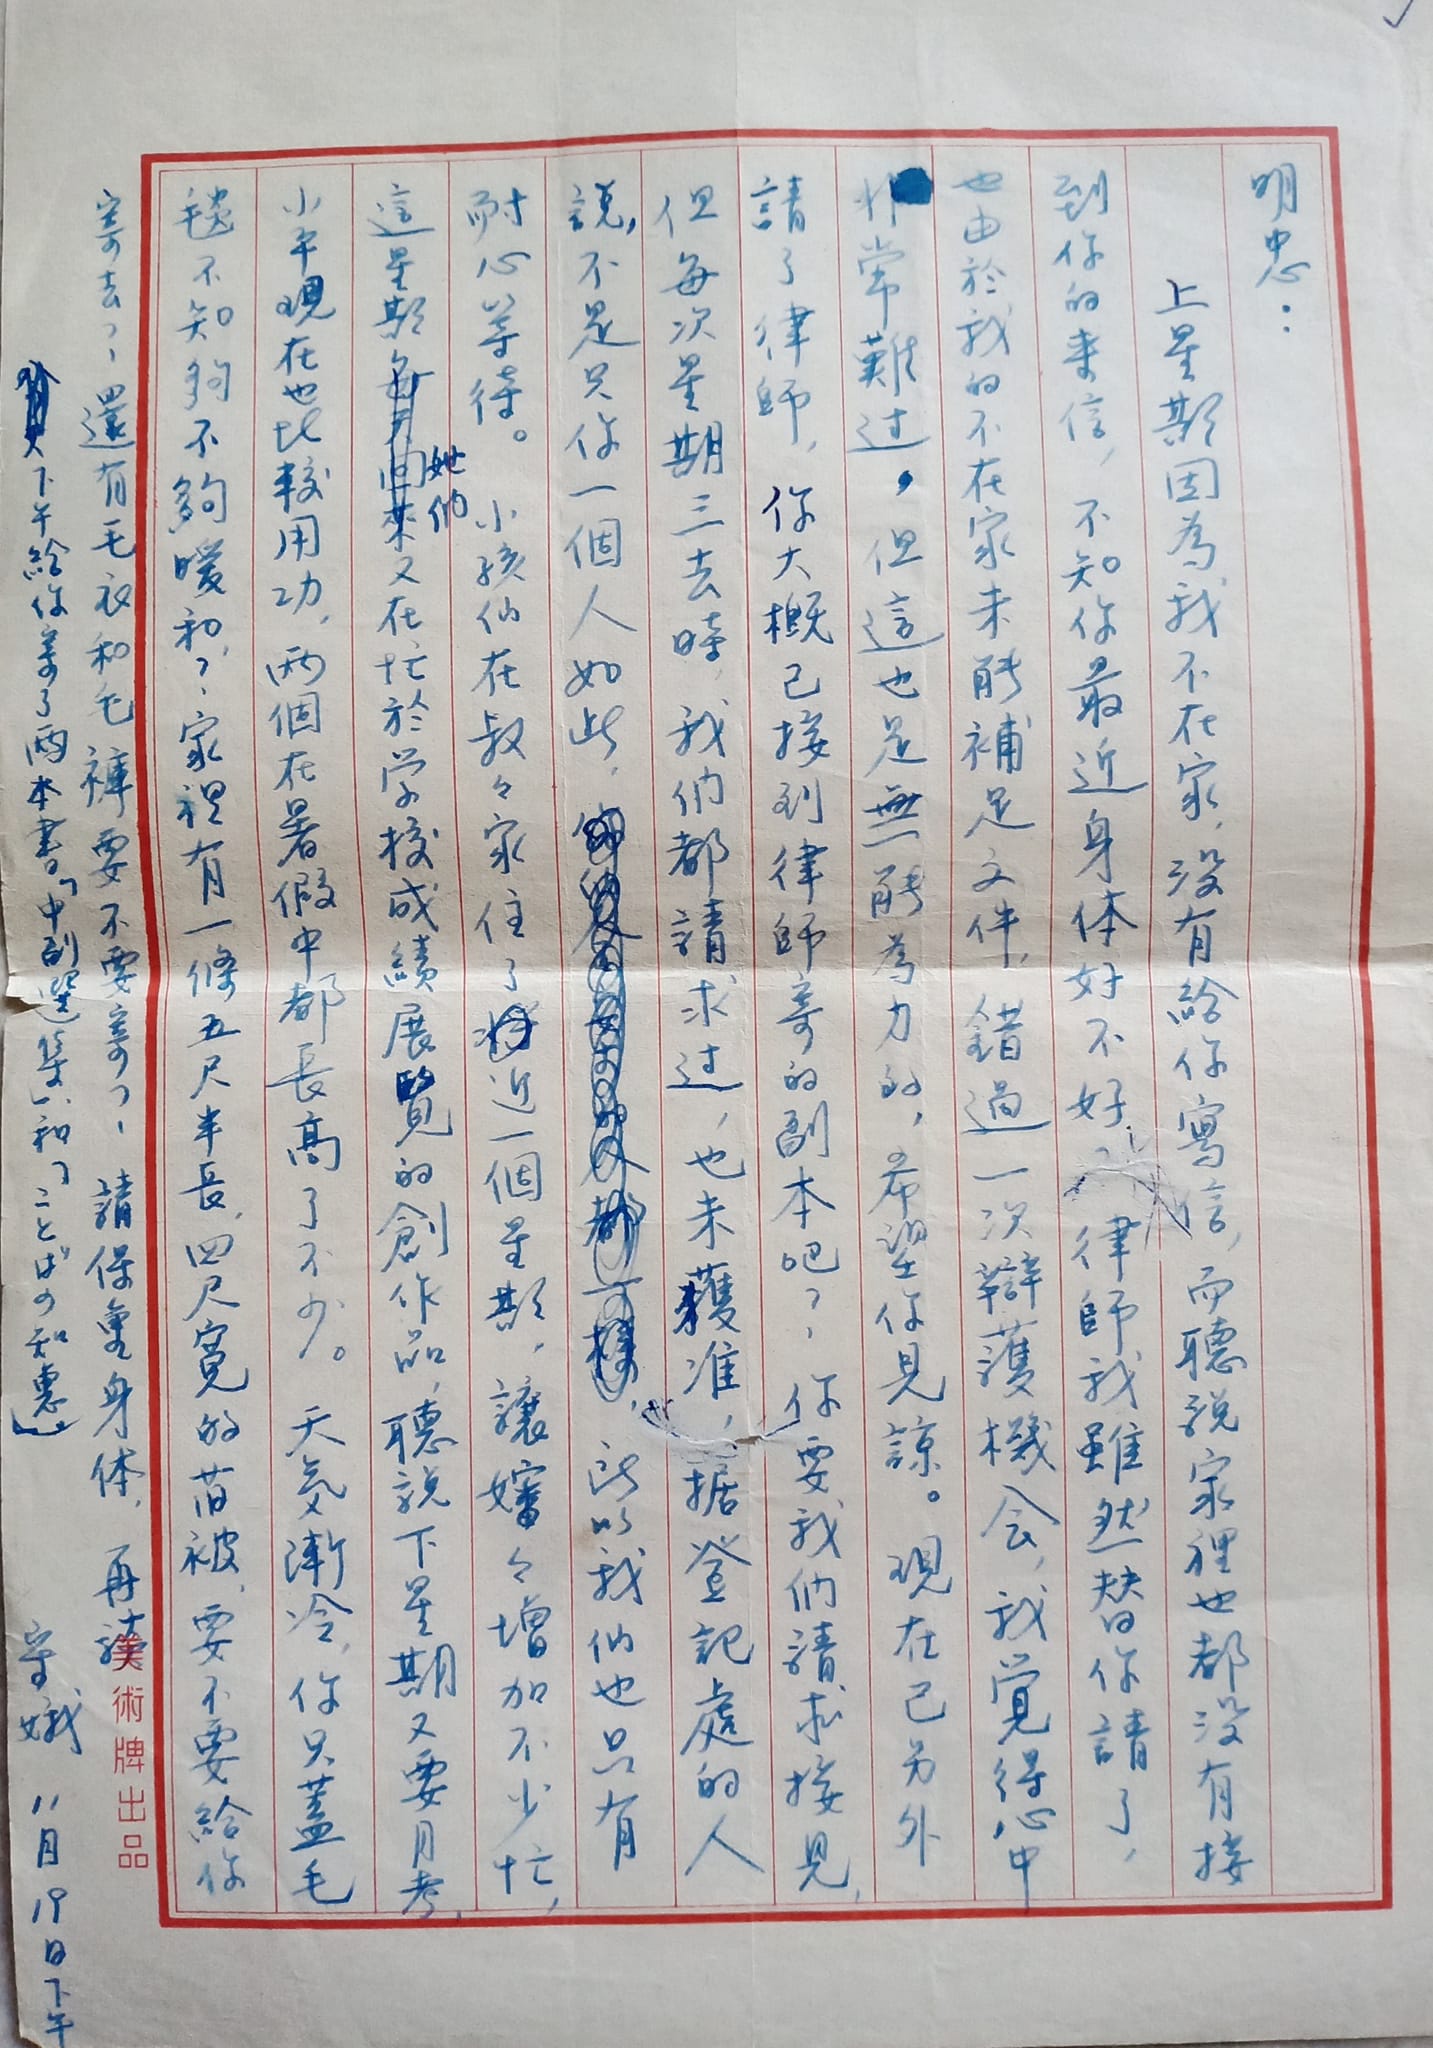 明忠：
上星期因為我不在家，没有給你寫信，而聽説家裡也都没有接
到你的来信，不知你最近身体好不好？律師我雖然替你請了，
也由於我的不在家未能補足文件，錯過一次辯護機会，我覚得心中
非常難过，但這也是無能為力的，希望你見諒。現在已另外
請了律師，你大概已接到律師寄的副本吧？你要我們請求接見，
但每次星期三去時，我們都請求过，也未獲准，据登記處的人
説，不是只你一個人如此，所以我们也只有
耐心等待。小孩们在叔々家住了近一個星期，讓嬸々增加不少忙，
這星期她們又在忙於学校成績展覽的創作品，聽説下星期又要月考，
小平現在也比較用功，兩個在暑假中都長高了不少。天氣漸冷，你只蓋毛
毯不知夠不夠暖和？家裡有一條五尺半長，四尺寬的苗被，要不要給你
寄去？還有毛衣和毛褲要不要寄？請保重身体，再談
守娥 11月19日下午
下午給你寄了兩本書「中副選集」和「ことばの知惠」
美術牌出品